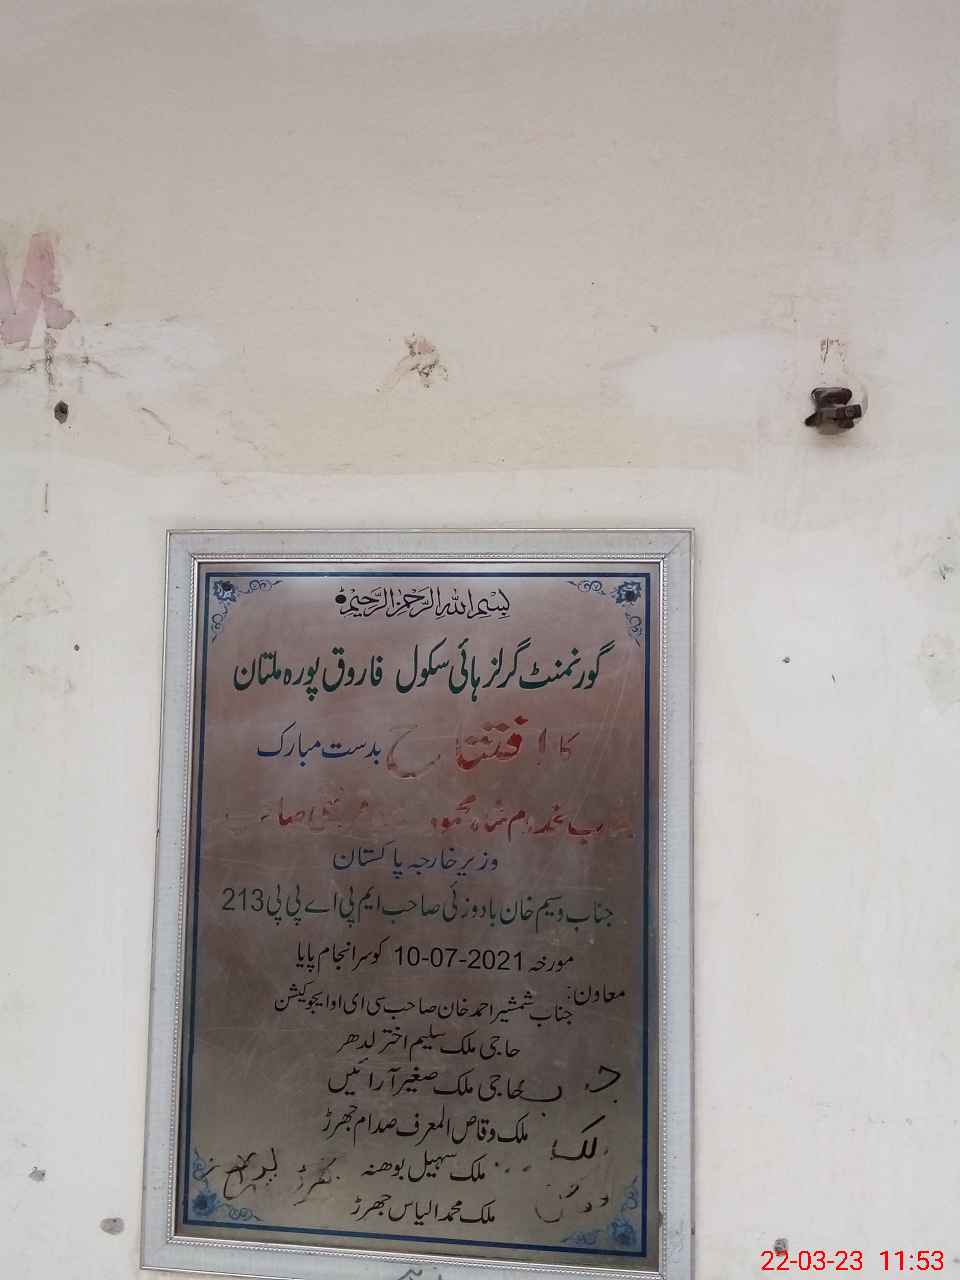 بسم اللہ الرحمن الرحیم
گورنمنٹ گرلز ہائی سکول فاروق پورہ ملتان
کا افتتاح بدست مبارک
مخدوم شاہ محمود
وزیر خارجہ پاکستان
جناب وسیم خان بادوزئی صاحب ایم پی اے پی پی 213
مورخہ 10-07-2021 کو سر انجام پایا
معاون:
جناب شمشیر احمد خان صاحب سی ای او ایجوکیشن
حاجی ملک سلیم اختر لدھر
حاجی ملک صغیر آرائیں
ملک وقاص المعرف صدام جھرڑ
ملک سہیل بوھنہ
ملک محمد الیاس جھرڑ
22-03-23 11:53